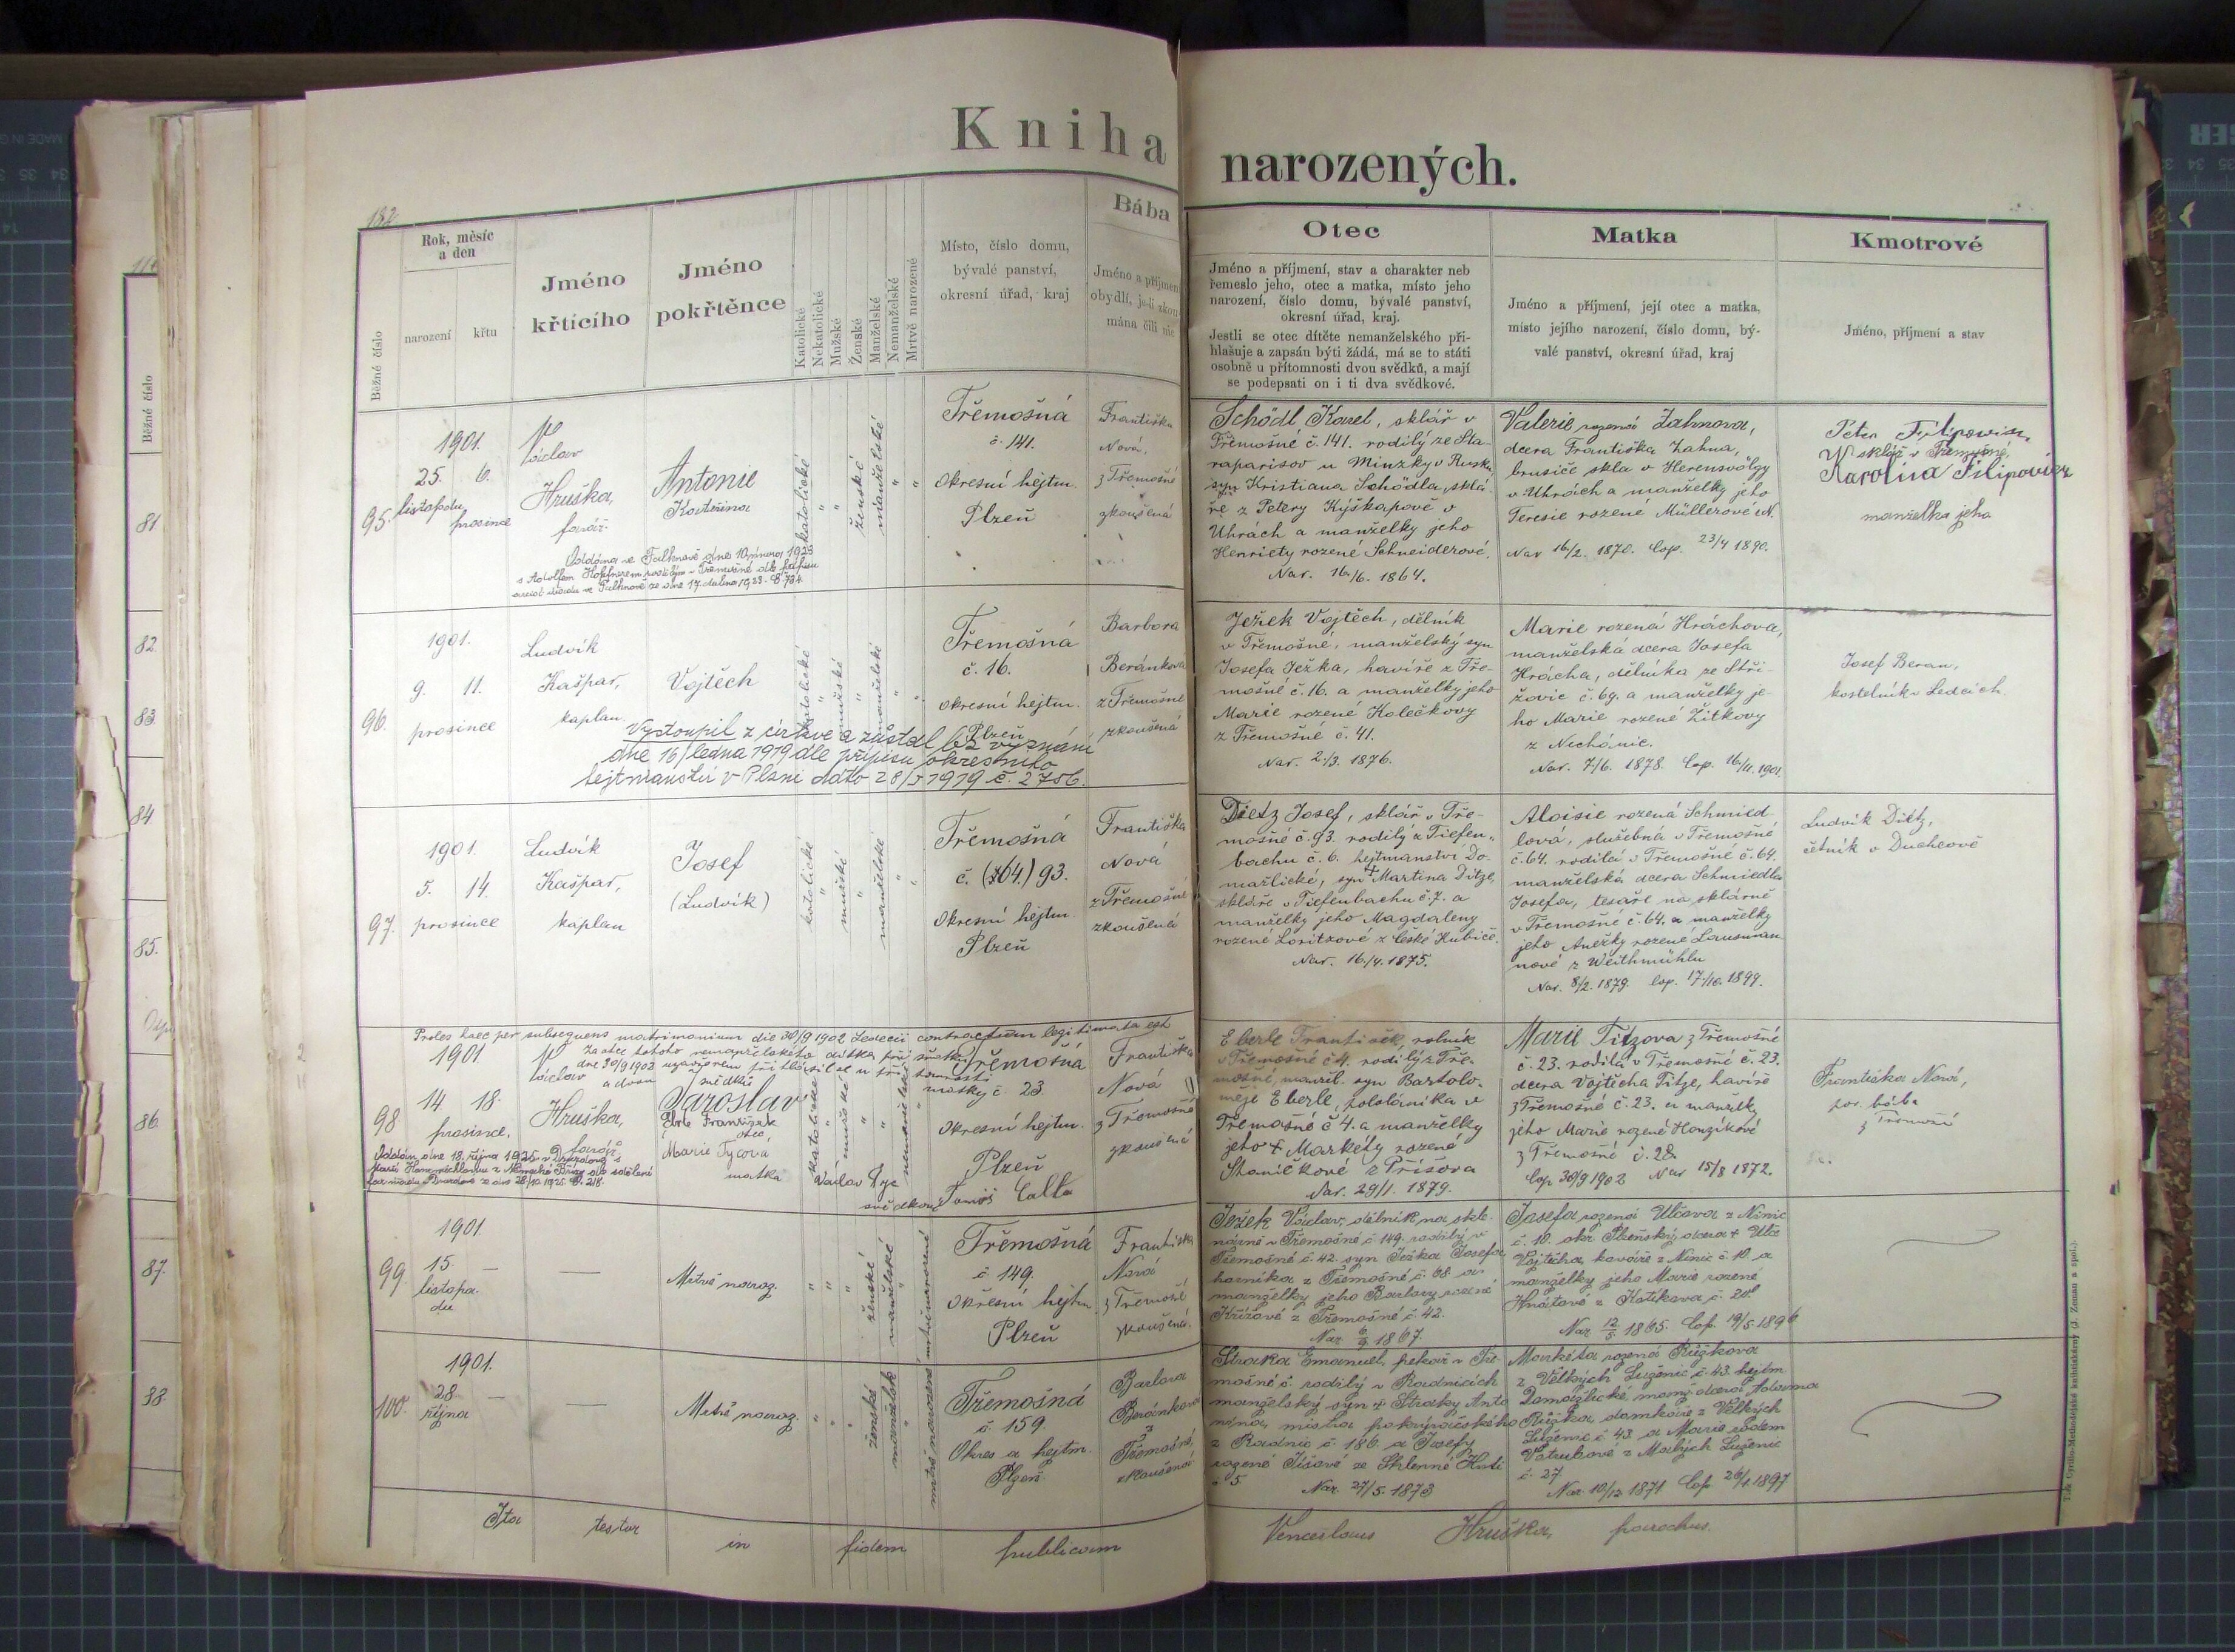 Kniha narozených.
182
Běžné číslo
Rok, měsíc
a den
narození
křtu
Jméno
křtícího
Jméno
pokřtěnce
Katolické
Nekatolické
Mužské
Ženské
Manželské
Nemanželské
Mrtvě narozené
Místo, číslo domu,
bývalé panství,
okresní úřad, kraj
Bába
Jméno a příjmení
obydlí, je-li zkou-
mána čili nic
Otec
Jméno a příjmení, stav a charakter neb
řemeslo jeho, otec a matka, místo jeho
narození, číslo domu, bývalé panství,
okresní úřad, kraj.
Jestli se otec dítěte nemanželského při-
hlašuje a zapsán býti žádá, má se to státi
osobně u přítomnosti dvou svědků, a mají
se podepsati on i ti dva svědkové.
Matka
Jméno a příjmení, její otec a matka,
místo jejího narození, číslo domu, bý-
valé panství, okresní úřad, kraj
Kmotrové
Jméno, příjmení a stav
95.
1901.
25. 6.
listopadu
prosince
Václav
Hruška,
farář.
Antonie
Kateřina
katolické
"
"
ženské
manželské
"
"
Třemošná
č. 141.
Okresní hejtm.
Plzeň
Františka
Nová,
z Třemošné
zkoušená
Oddána ve Falknově dne 10. února 1923
s Adolfem
ve Falknově ze dne 17. dubna 1923. č. 734.
Schödl Karel, sklář v
Třemošné č. 141. rodilý ze Sta-
raparisov u Minzky v Rusku,
syn Kristiana Schödla, sklá-
ře z Petery Kýškapově v
Uhrách a manželky jeho
Henriety rozené Schneiderové.
Nar. 16./6. 1864.
Valerie rozená Zahnova,
dcera Františka Zahna,
brusiče skla v Herensvölgy
v Uhrách a manželky jeho
Teresie rozené Müllerové
Nar 16/2. 1870. Cop. 23/4 1890.
Peter Filipowicz,
sklář v Třemošné,
Karolina Filipovicz
manželka jeho
96.
1901.
9. 11.
prosince
Ludvík
Kašpar,
kaplan.
Vojtěch
katolické
"
mužské
"
manželské
"
"
Třemošná
č. 16.
Okresní hejtm.
Plzeň
Barbora
Beránková
z Třemošné
zkoušená
Vystoupil z církve a zůstal bez vyznání
dne 16/ledna 1919 dle přípisu okresního
hejtmanství v Plzni dáto 28/I 1919 č. 2756.
Ježek Vojtěch, dělník
v Třemošné, manželský syn
Josefa Ježka, havíře z Tře-
mošné č. 16. a manželky jeho
Marie rozené Kolečkovy
z Třemošné č. 41.
Nar. 2./3. 1876.
Marie rozená Hráchova,
manželská dcera Josefa
Hrácha, dělníka ze Stři-
žovic č. 69. a manželky je-
ho Marie rozené Žitkovy
z Nechánic.
Nar. 7./6. 1878. Cop. 16/11. 1901.
Josef Beran,
kostelník v Ledcích.
97.
1901.
5. 14.
prosince
Ludvík
Kašpar,
kaplan
Josef
(Ludvík)
katolické
"
mužské
"
manželské
"
"
Třemošná
č. (764.) 93.
Okresní hejtm.
Plzeň
Františka
Nová
z Třemošné
zkoušená
Dietz Josef, sklář v Tře-
mošné č. 93. rodilý z Tiefen-
bachu č. 6. hejtmanství Do-
mažlické, syn † Martina Ditze,
skláře v Tiefenbachu č. 7. a
manželky jeho Magdaleny
rozené Loritzové z České Kubice.
Nar. 16./4. 1875.
Aloisie rozená Schmied-
lová, služebná v Třemošné
č. 64. rodilá v Třemošné č. 64.
manželská dcera Schmiedla
Josefa, tesaře na sklárně
v Třemošné č. 64. a manželky
jeho Anežky rozené Lausman-
nové z Weithmühlu
Nar. 8/2. 1879. Cop. 17./10. 1899.
Ludvík Ditz,
četník v Duchcově
Proles haec per subsequens matrimonium die 30/9 1902 Ledecii contractum legitimata est
Za otce tohoto nemanželského dítka při sňatku
dne 30/9 1902 uzavřeném přihlásil se u přítomnosti
matky a dvou svědků
98
1901
14 18.
prosince.
Václav
Hruška,
farář
Jaroslav
Eberle František
otec
Marie Tycová
matka
katolické
"
mužské
"
"
nemanželské
"
Václav Tyc
Tomáš Calta
svědkové
Třemošná
č. 23.
Okresní hejtm.
Plzeň
Františka
Nová
z Třemošné
zkoušená
Oddán dne 18. října 1925 v Draždově s
Eberle František, rolník
v Třemošné č. 4. rodilý z Tře-
mošné, manžel. syn Bartolo-
měje Eberle, pololáníka v
Třemošné č 4. a manželky
jeho † Markéty rozené
Staničkové z Příšova
Nar. 29/1. 1879.
Marie Titzova z Třemošné
č. 23. rodilá v Třemošné č. 23.
dcera Vojtěcha Titze, havíře
z Třemošné č. 23. a manželky
jeho Marie rozené Honzíkové
z Třemošné č. 28
Cop 30/9 1902 Nar 15/8 1872.
Františka Nová,
por. bába
z Třemošné
99.
1901
15.
listopa-
du
—
—
Mrtvě naroz.
"
"
"
ženské
manželské
"
mrtvě narozené
Třemošná
č. 149.
Okresní hejtm.
Plzeň
Františka
Nová
z Třemošné
zkoušená.
Ježek Václav, dělník na skle-
nárně v Třemošné č. 149. rodilý v
Třemošné č. 42. syn Ježka Josefa
horníka z Třemošné č. 68 a
manželky jeho Barbory rozené
Křížové z Třemošné č. 42.
Nar. 6/9 1867.
Josefa rozená Ulčova z Ninic
č. 10. okr. Plzeňský, dcera † Ulče
Vojtěcha kováře z Ninic č. 10 a
manželky jeho Marie rozené
Hnátové z Kotíkova č. 20
Nar. 12/5 1865. Cop. 19/5. 1896.
100.
1901.
28.
října
—
—
Mrtvě naroz.
"
"
"
ženské
manželsk
"
mrtvě narozené
Třemošná
č. 159.
Okres a hejtm.
Plzeň.
Barbora
Beránkova
z
Třemošné,
zkoušená
Straka Emanuel, pekař v Tře-
mošné č. rodilý v Radnicích
manželský syn † Straky Anto-
nína, mistra pokrývačského
z Radnic č. 186. a Josefy
rozené Jíšové ze Sklenné Huti
č. 5. Nar. 27/5. 1873
Markéta rozená Růžkova
z Velkých Luženic č. 43. hejtm.
Domažlické, manž. dcera Adama
Růžka, domkáře z Velkých
Luženic č. 43. a Marie rodem
Vatrubové z Malých Luženic
č. 27
Nar. 10/12 1871 Cop. 26/1. 1897
Ita testor in fidem publicam
Venceslaus Hruška, parochus.
Běžné číslo
81
82
83
84
85.
86
87.
88.